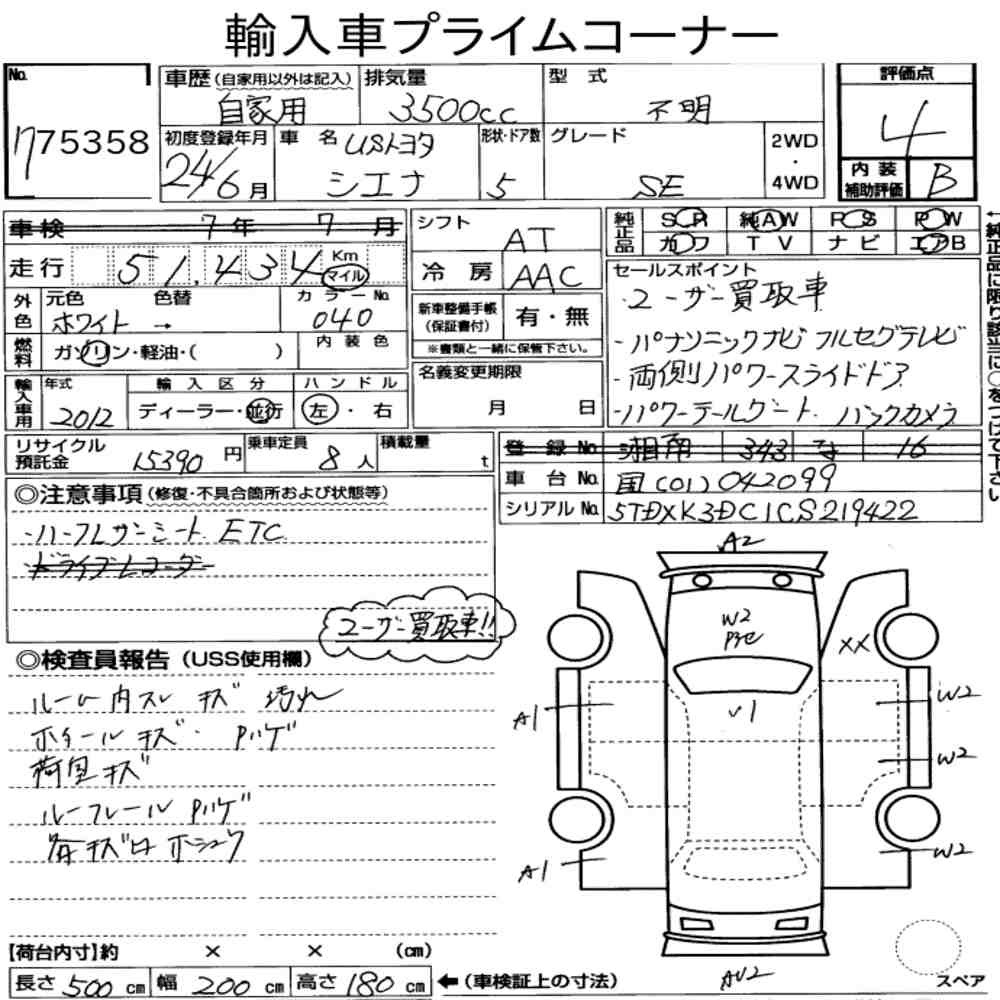 輸入車プライムコーナー
No. 775358
車歴(自家用以外は記入) 自家用
排気量 3500cc
型式 不明
評価点 4
初度登録年月 24/6月
車名 USトヨタ シエナ
形状・ドア数 5
グレード SE
2WD・4WD
内装補助評価 B
車検 7年 7月
シフト AT
純正品 SR 純AW PS PW
カワ TV ナビ エアB
走行 51,434 Km マイル
冷房 AAC
セールスポイント
・ユーザー買取車
・パナソニックナビ フルセグテレビ
・両側パワースライドドア
・パワーテールゲート. バックカメラ
←純正品に限り該当に○をつけて下さい
外色 元色 ホワイト 色替 → カラーNo. 040
新車整備手帳(保証書付) 有・無
※書類と一緒に保管下さい。
燃料 ガソリン・軽油・( ) 内装色
名義変更期限 月 日
輸入車用 年式 2012 輸入区分 ディーラー・並行 ハンドル 左・右
リサイクル預託金 15390円
乗車定員 8人
積載量 t
登録No. 湘南 343 な 16
車台No. 国(01)042099
シリアルNo. 5TDXK3DC1CS219422
◎注意事項(修復・不具合箇所および状態等)
・ハーフレザーシート ETC
ドライブレコーダー
ユーザー買取車!!
◎検査員報告(USS使用欄)
ルーム内スレ キズ 汚れ
ホイールキズ・Pハゲ
荷室キズ
ルーフレール Pハゲ
各キズ ホシュウ
A2
W2
XX
√1
A1
W2
W2
A1
W2
AU2
スペア
【荷台内寸】約 × × (cm)
長さ 500cm 幅 200cm 高さ 180cm ←(車検証上の寸法)